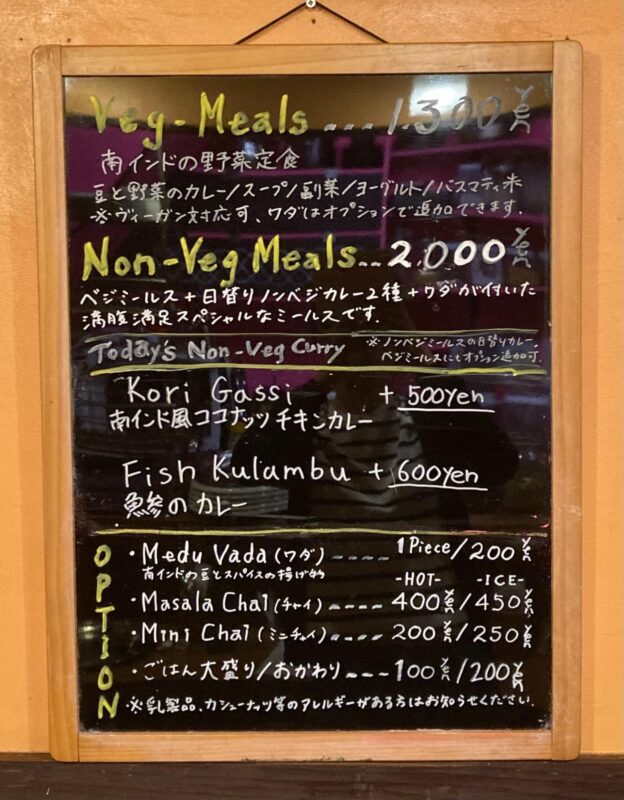 Veg-Meals --- 1,300 Yen
南インドの野菜定食
豆と野菜のカレー/スープ/副菜/ヨーグルト/バスマティ米
※ヴィーガン対応可、ワダはオプションで追加できます.
Non-Veg Meals -- 2,000 Yen
ベジミールス+日替りノンベジカレー2種+ワダが付いた
満腹満足スペシャルなミールスです.
Today's Non-Veg Curry
※ノンベジミールスの日替りカレー.
ベジミールスにもオプション追加可.
Kori Gassi + 500yen
南インド風ココナッツチキンカレー
Fish Kulambu + 600yen
魚参のカレー
OPTION
・Medu Vada (ワダ) ---- 1 Piece/200 Yen
南インドの豆とスパイスの揚げ物
-HOT- -ICE-
・Masala Chai (チャイ) ---- 400 Yen/450 Yen
・Mini Chai (ミニチャイ) --- 200 Yen/250 Yen
・ごはん大盛り/おかわり --- 100 Yen/200 Yen
※乳製品、カシューナッツ等のアレルギーがある方はお知らせください.